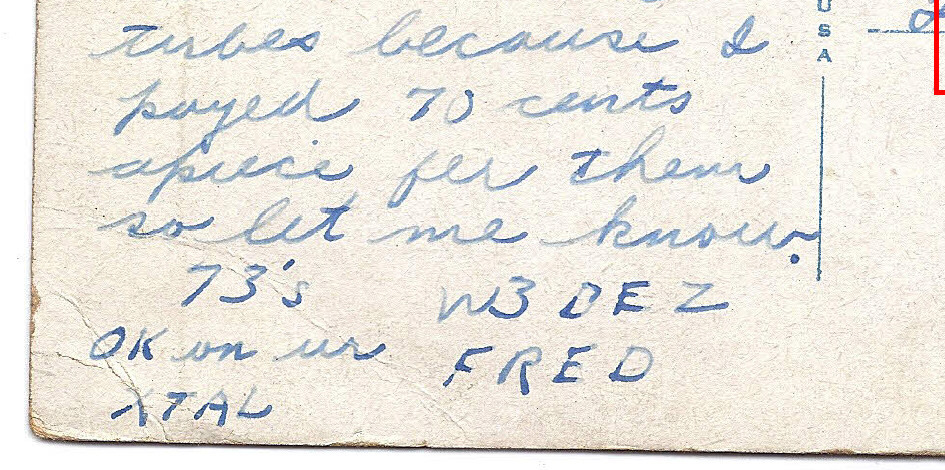 tubes because I
payed 70 cents
apiece fer them
so let me know.
73's W3DEZ
OK on ur FRED
XTAL
USA